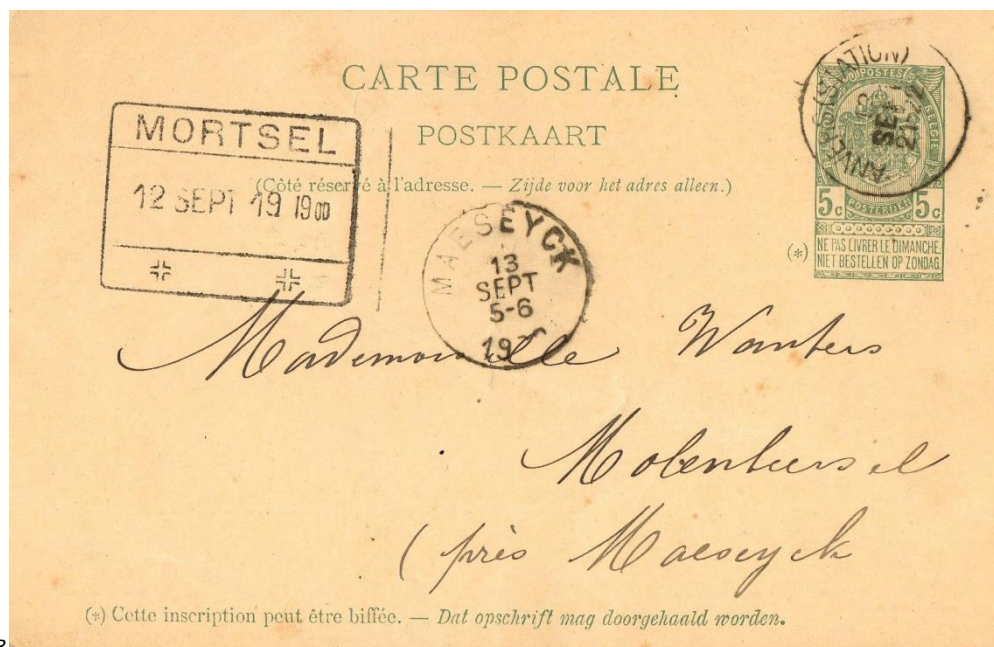 CARTE POSTALE
POSTKAART
(Côté réservé à l'adresse. — Zijde voor het adres alleen.)
MORTSEL
12 SEPT 19 19 00
MAESEYCK
13
SEPT
5-6
19
ANVERS (STATION)
12
SEPT
POSTES
BELGIE
POSTERIJEN
5c 5c
(*) NE PAS LIVRER LE DIMANCHE.
NIET BESTELLEN OP ZONDAG
Mademoiselle Wanters
Molenbeersel
(près Maeseyck
(*) Cette inscription peut être biffée. — Dat opschrift mag doorgehaald worden.